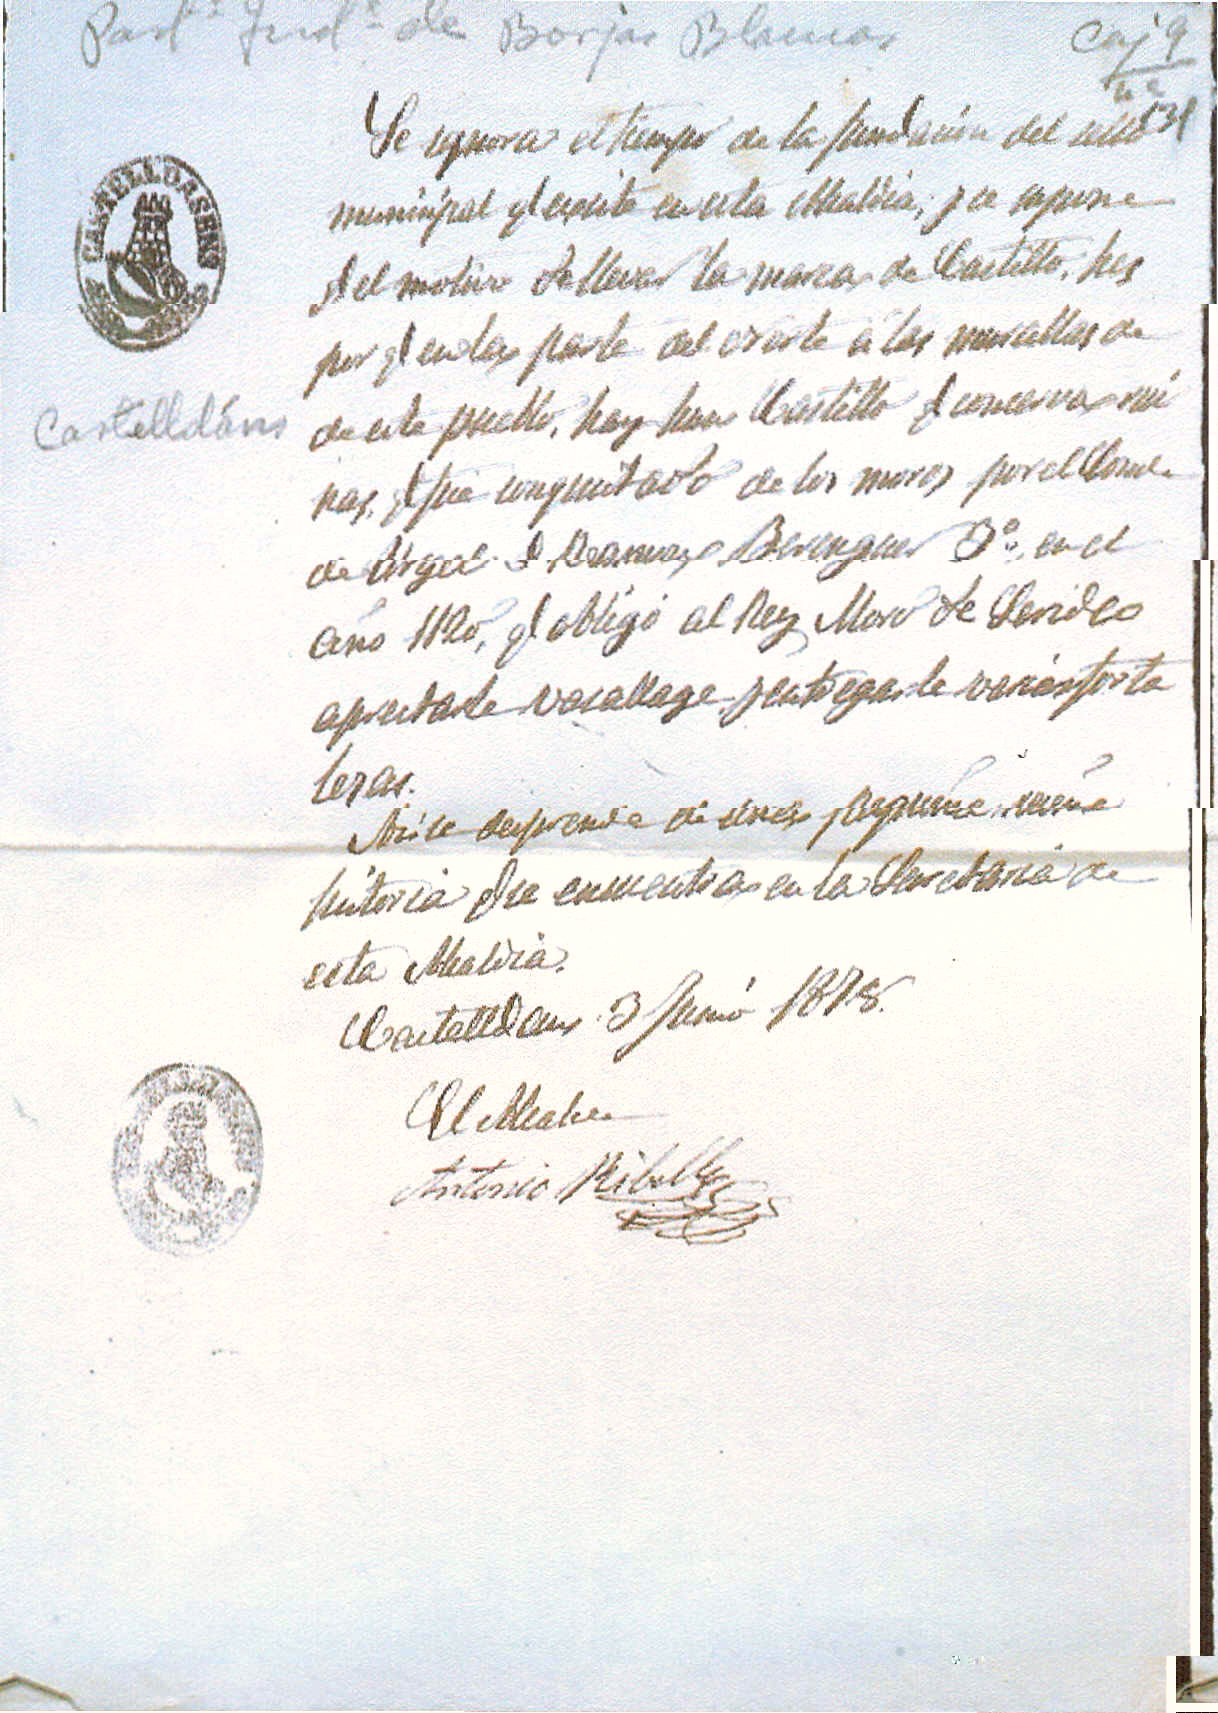 Partº Judº de Borjas Blancas
Caj 9
nº 31
CASTELLDASENS
Se ignora el tiempo de la fundacion del sello
municipal qe ecsiste en esta Alcaldia, y se supone
qe el motivo de llevar la marca de Castillo, hes
por qe en la parte del oeste a las murallas de
de este pueblo, hay hun Castillo qe conserva rui
nas, qe fue conquistado de los moros por el Conde
de Urgel D Ramon Berenguer 3º, en el
año 1120, qe obligó al Rey Moro de Lerida
aprestarle vasallage, y entregarle varias forta
lezas.
Asi se desprende de una pequeña reseña
historia qe se encuentra en la Secretaria de
esta Alcaldia.
Castelldans 3 Junio 1878.
El Alcalde
Antonio Ribelles
Castelldáns